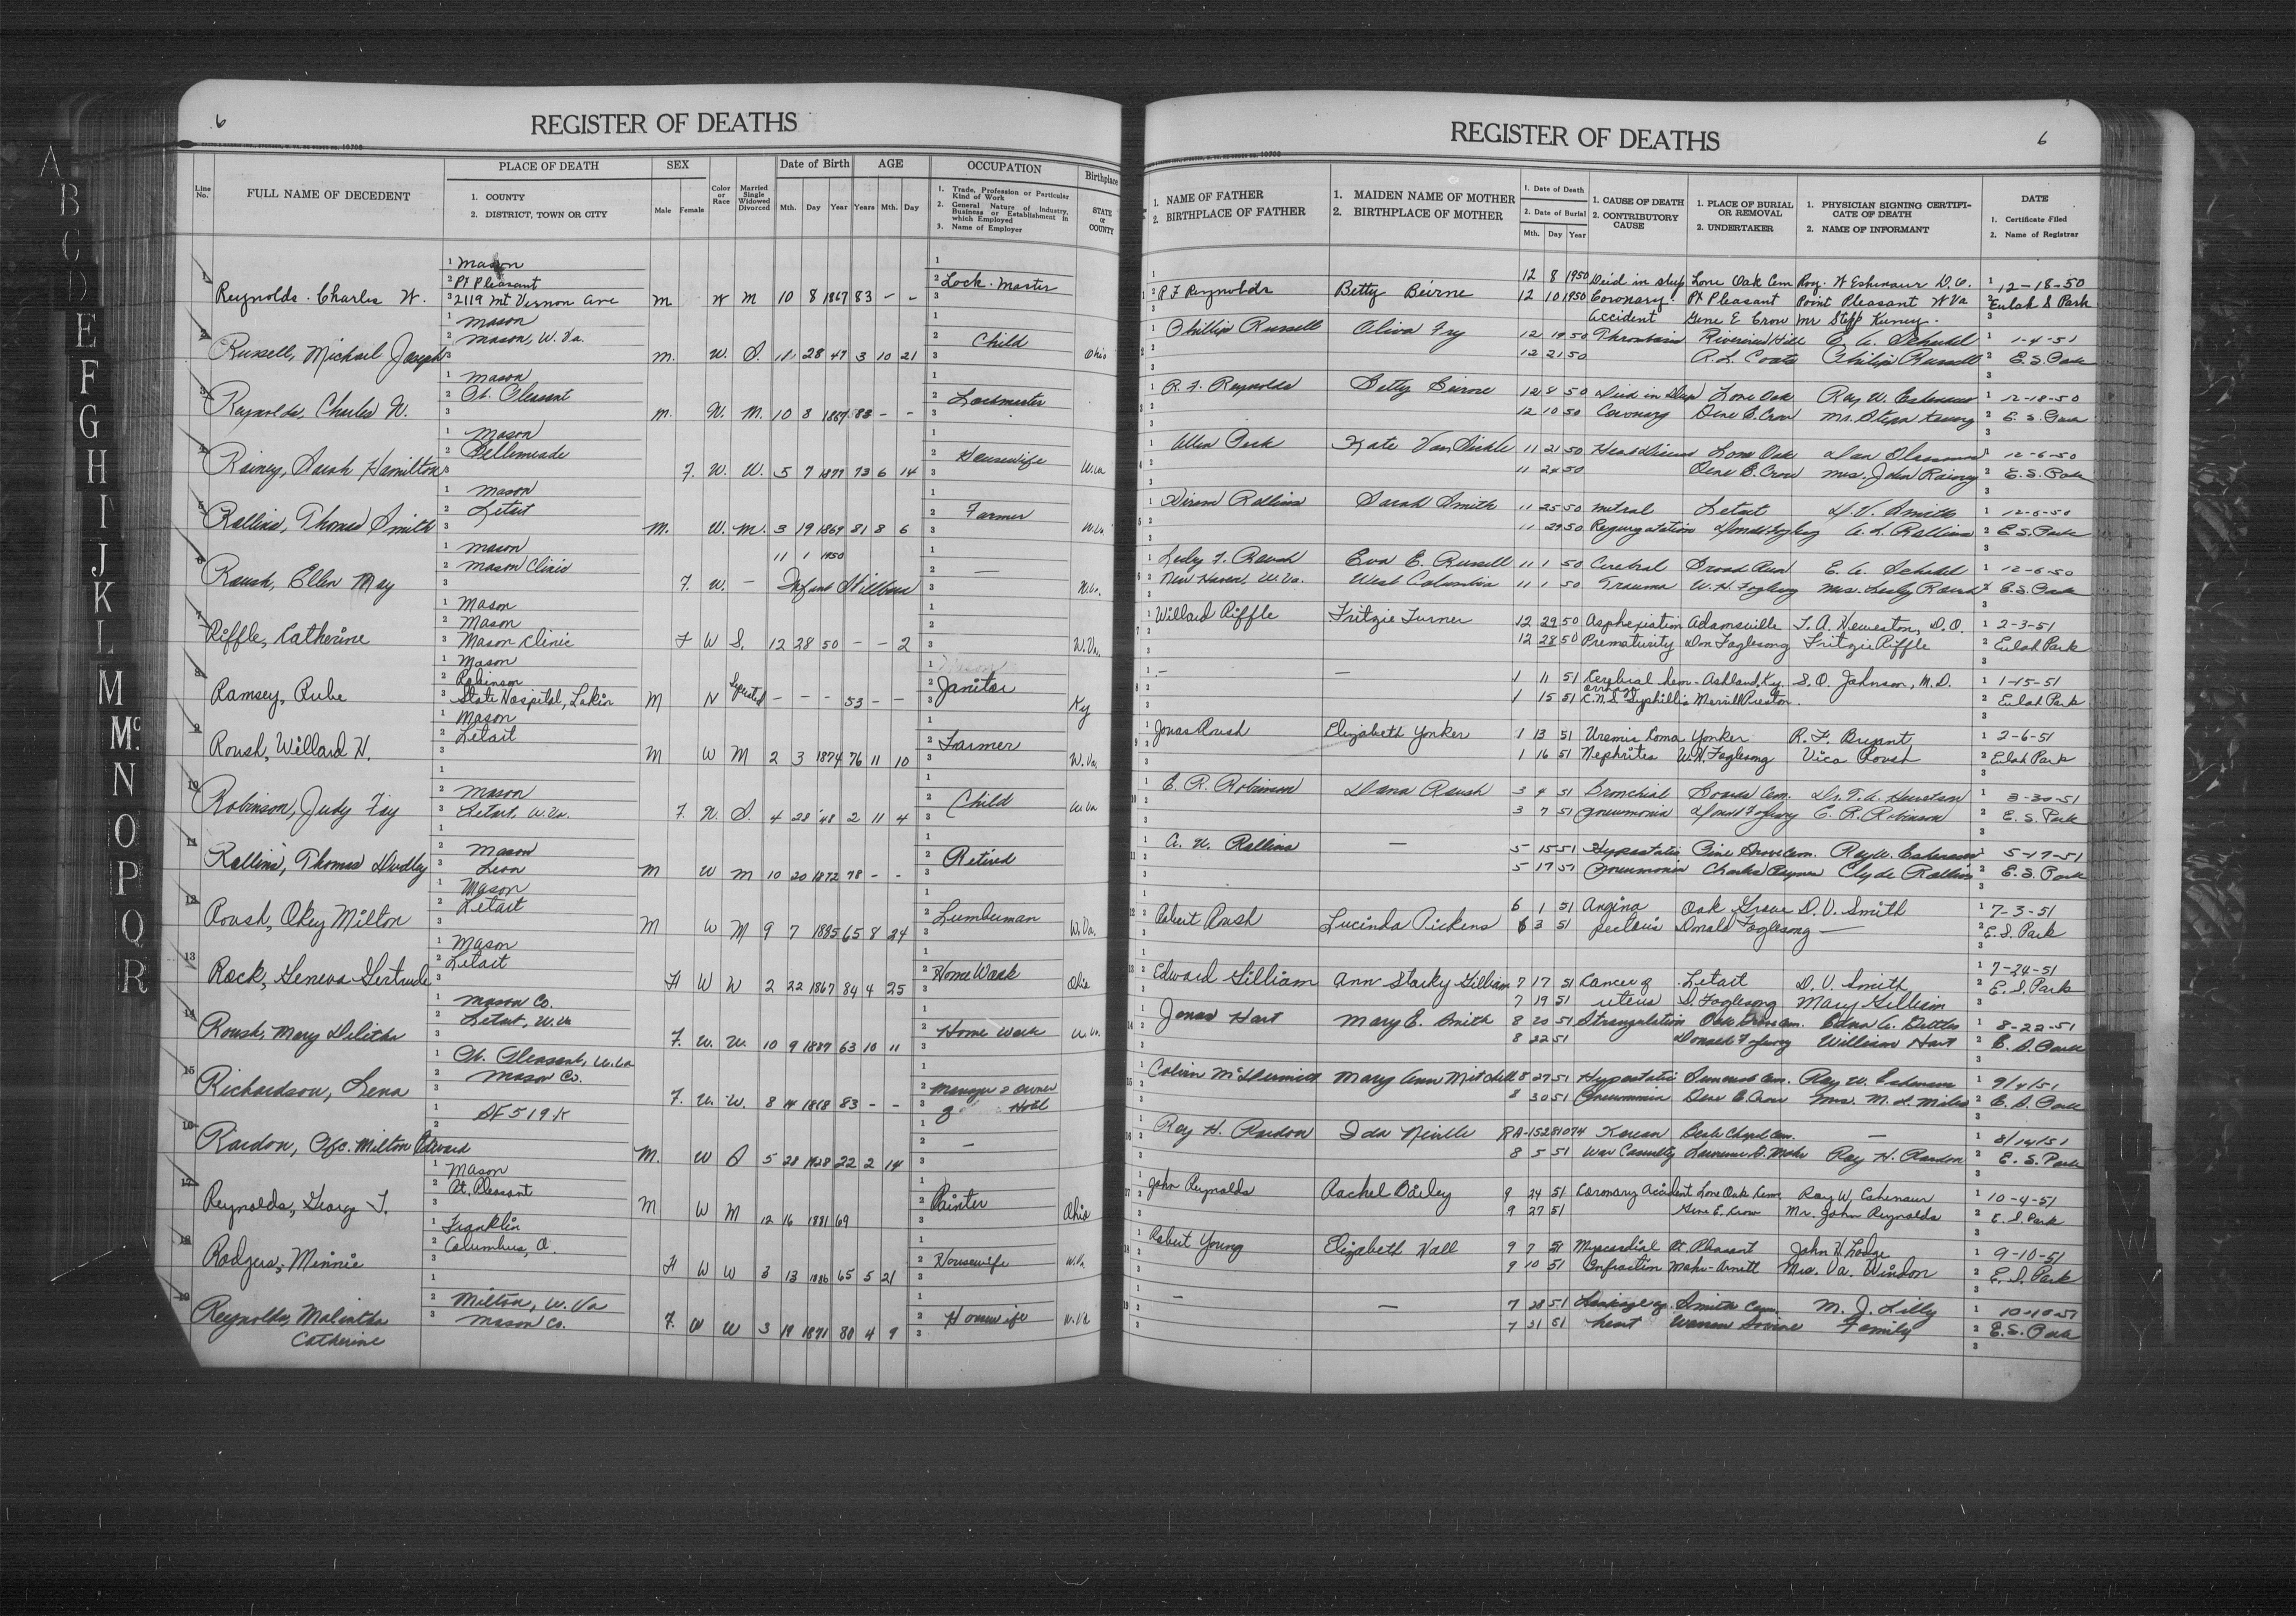 A
B
C
D
E
F
G
H
I
J
K
L
M
Mc
N
O
P
Q
R
6
REGISTER OF DEATHS
Line No.
FULL NAME OF DECEDENT
PLACE OF DEATH
1. COUNTY
2. DISTRICT, TOWN OR CITY
SEX
Male Female
Color or Race
Married Single Widowed Divorced
Date of Birth
Mth. Day Year
AGE
Years Mth. Day
OCCUPATION
1. Trade, Profession or Particular Kind of Work
2. General Nature of Industry, Business or Establishment in which Employed
3. Name of Employer
Birthplace
STATE or COUNTY
1 Reynolds. Charles W. 1 Mason 2 Pt Pleasant 3 2119 Mt Vernon ave M W M 10 8 1867 83 – – Lock. Master
2 Russell, Michael Joseph Mason Mason, W. Va. M. W. S. 11 28 47 3 10 21 Child Ohio
3 Reynolds, Charles W. Mason Pt. Pleasant M. W. M. 10 8 1867 83 – – Lockmaster
4 Rainey, Sarah Hamilton Mason Bellemeade F. W. W. 5 7 1877 73 6 14 Housewife W.Va
5 Rollins, Thomas Smith Mason Letart M. W. M. 3 19 1869 81 8 6 Farmer W.Va
6 Roush, Ellen May Mason Mason Clinic F. W. – 11 1 1950 Infant Stillborn – W.Va.
7 Riffle, Catherine Mason Mason Mason Clinic F W S. 12 28 50 – – 2 W.Va.
8 Ramsey, Rube Mason Robinson State Hospital, Lakin M N Seperated – – – 53 – – Janitor Ky
9 Roush, Willard H. Mason Letart M W M 2 3 1874 76 11 10 Farmer W.Va.
10 Robinson, Judy Fay Mason Letart, W.Va. F. W. S. 4 28 '48 2 11 4 Child W.Va
11 Rollins, Thomas Dudley Mason Leon M W M 10 20 1872 78 – – Retired
12 Roush, Okey Milton Mason Letart M W M 9 7 1885 65 8 24 Lumberman W.Va.
13 Rock, Geneva Gertrude Mason Letart F W W 2 22 1867 84 4 25 Home Work Ohio
14 Roush, Mary Delitha Mason Co. Letart, W.Va F. W. W. 10 9 1887 63 10 11 Home Work W.Va.
15 Richardson, Lena Pt. Pleasant, W.Va Mason Co. F. W. W. 8 14 1868 83 – – Manager & owner of Hotel
16 Rardon, Pfc. Milton Edward M. W S 5 28 1928 22 2 14 –
17 Reynolds, George T. Mason Pt. Pleasant M W M 12 16 1881 69 Painter Ohio
18 Rodgers, Minnie Franklin Columbus, O. F W W 3 13 1886 65 5 21 Housewife W.Va.
19 Reynolds, Malintha Catherine Milton, W.Va Mason Co. F. W W 3 19 1871 80 4 9 Housewife W.Va
6
REGISTER OF DEATHS
1. NAME OF FATHER
2. BIRTHPLACE OF FATHER
1. MAIDEN NAME OF MOTHER
2. BIRTHPLACE OF MOTHER
1. Date of Death
2. Date of Burial
Mth. Day Year
1. CAUSE OF DEATH
2. CONTRIBUTORY CAUSE
1. PLACE OF BURIAL OR REMOVAL
2. UNDERTAKER
1. PHYSICIAN SIGNING CERTIFICATE OF DEATH
2. NAME OF INFORMANT
DATE
1. Certificate Filed
2. Name of Registrar
12 8 1950 Died in sleep Lone Oak Cem Roy. W Eshenaur D.O. 12-18-50
R F Reynolds Betty Beirne 12 10 1950 Coronary Pt Pleasant Point Pleasant W Va Eulah S Park
Accident Gene E Crow Mr Stepp Kenny.
Phillip Russell Oliva Fry 12 19 50 Thrombosis Riverview Hill 1-4-51
12 21 50 R. L. Coats Phillip Russell E. S. Park
R. F. Reynolds Betty Beirne 12 8 50 Died in Sleep Lone Oak Ray W. Eshenaur 12-18-50
12 10 50 Coronary Gene E. Crow E. S. Park
Allen Peck Kate Van Sickle 11 21 50 Heart Disease Lone Oak 12-6-50
11 24 50 Gene E. Crow Mrs. John Rainey E. S. Park
Hiram Rollins Sarah Smith 11 25 50 Mitral Letart D. V. Smith 12-6-50
11 29 50 Regurgatation Donald Foglesong A. L. Rollins E. S. Park
Lesly F. Roush Eva E. Russell 11 1 50 Cerebral Broad Run 12-6-50
New Haven, W.Va. West Columbia 11 1 50 Trauma W. H. Foglesong Mrs. Lesly Roush E. S. Park
Willard Riffle Fritzie Turner 12 29 50 Asphexiation Adamsville T. A. Heweston, D.O. 2-3-51
12 28 50 Prematurity Don Foglesong Fritzie Riffle Eulah Park
– – 1 11 51 Cerybral hemorrhage Ashland, Ky. S. O. Johnson, M.D. 1-15-51
1 15 51 C.N.S. Syphillis Merrill Preston. Eulah Park
Jonas Roush Elizabeth Yonker 1 13 51 Uremia Coma Yonker R. F. Bryant 2-6-51
1 16 51 Nephrites W. H. Foglesong Vica Roush Eulah Park
E. R. Robinson Dana Roush 3 4 51 Bronchial Cem. 3-30-51
3 7 51 pneumonia E. R. Robinson E. S. Park
– 5 15 51 Hypostatic Pine Grove Cem. Ray W. Eshenaur 5-17-51
5 17 51 pneumonia Clyde Rollins E. S. Park
Robert Roush Lucinda Pickens 6 1 51 Angina Oak Grove D. V. Smith 7-3-51
6 3 51 pectoris Donald Foglesong – E. S. Park
Edward Gilliam Ann Starky Gilliam 7 17 51 Cancer of Letart D. V. Smith 7-24-51
7 19 51 uterus D. Foglesong Mary Gilliam E. S. Park
Jonas Hart Mary E. Smith 8 20 51 Strangulation Oak Grove Cem. 8-22-51
8 22 51 William Hart E. S. Park
Calvin McDermitt Mary Ann Mitchell 8 27 51 Hypostatic Ray W. Eshenaur 9/4/51
8 30 51 Pneumonia Gene E. Crow Mrs. M. L. Miles E. S. Park
Roy H. Rardon Ida Neville RA-15281074 Korean – 8/14/51
8 5 51 War Casualty Roy H. Rardon E. S. Park
John Reynolds Rachel Bailey 9 24 51 Coronary Accident Lone Oak Cem. Ray W. Eshenaur 10-4-51
9 27 51 Gene E. Crow Mr. John Reynolds E. S. Park
Robert Young Elizabeth Hall 9 7 51 Myocardial Pt. Pleasant John H. Lodge 9-10-51
9 10 51 Infraction Mrs. Va. Windon E. S. Park
– – 7 28 51 Leakage of Smith Cem. M. J. Lilly 10-10-51
7 31 51 heart Family E. S. Park